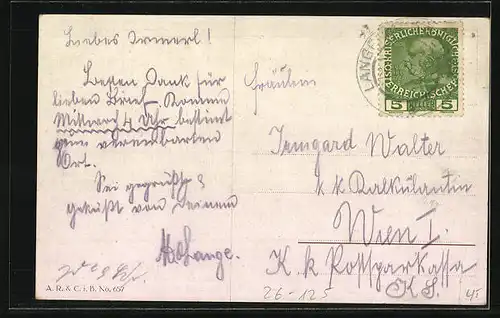 Liebes Irmerl!
Besten Dank für
lieben Brief. Komme
Mittwoch 4 Uhr bestimmt
zum vereinbarten
Ort.
Sei gegrüßt &
geküßt von Deinem
Lange.
A. R. & C. i. B. No. 657
LANGE
KAISERLICHE KÖNIGLICHE
ÖSTERREICHISCHE
5 HELLER 5
Fräulein
Irmgard Walter
k. k. Kalkulantin
Wien I.
K. k. Postsparkassa
26-125